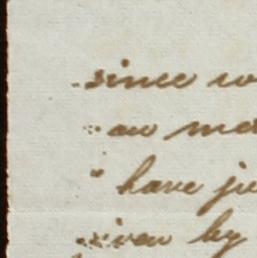 since w
an me
" have ju
given by